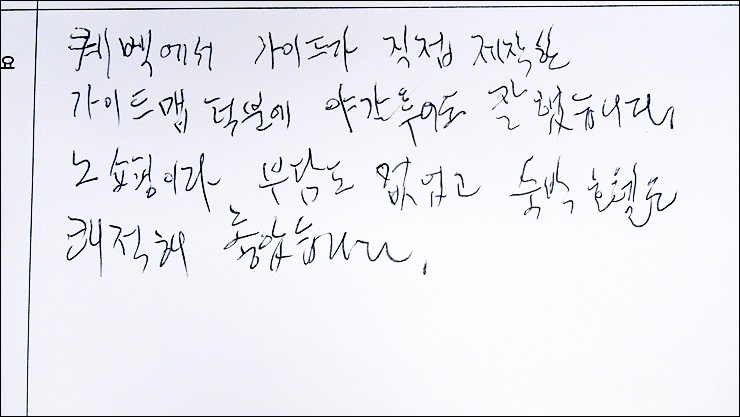 퀘벡에서 가이드가 직접 제작한
가이드맵 덕분에 야간투어도 잘했습니다.
노쇼핑이라 부담도 없었고 숙박호텔도
쾌적해 좋았습니다.
요